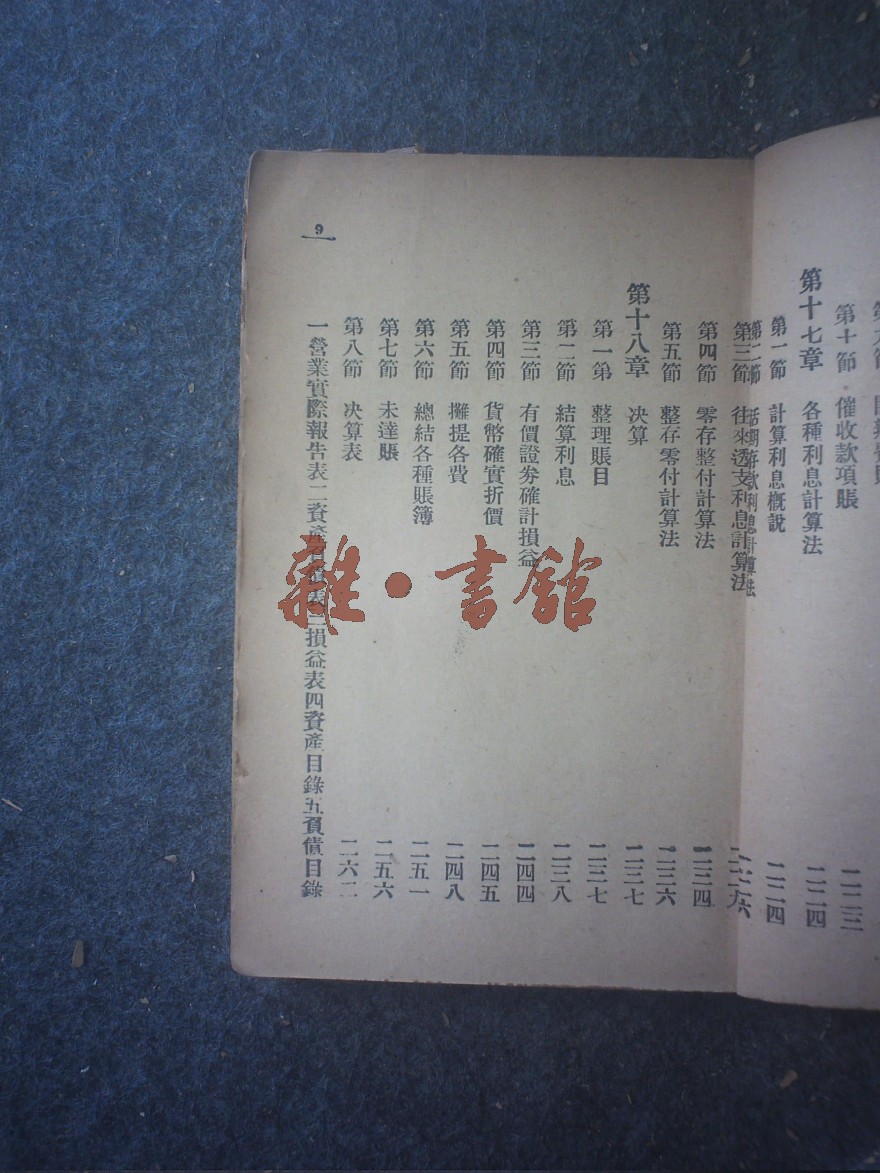 第十節 催收款項賬 二二三
第十七章 各種利息計算法 二二四
第一節 計算利息概說 二二四
第二節 活期存款利息計算法
第三節 往來透支利息計算法
第四節 零存整付計算法 二三四
第五節 整存零付計算法 二三六
第十八章 決算 二三七
第一第 整理賬目 二三七
第二節 結算利息 二三八
第三節 有價證券確計損益 二四四
第四節 貨幣確實折價 二四五
第五節 攤提各費 二四八
第六節 總結各種賬簿 二五一
第七節 未達賬 二五六
第八節 決算表 二六二
一營業實際報告表二資產負債表三損益表四資產目錄五負債目錄
9
雜·書館